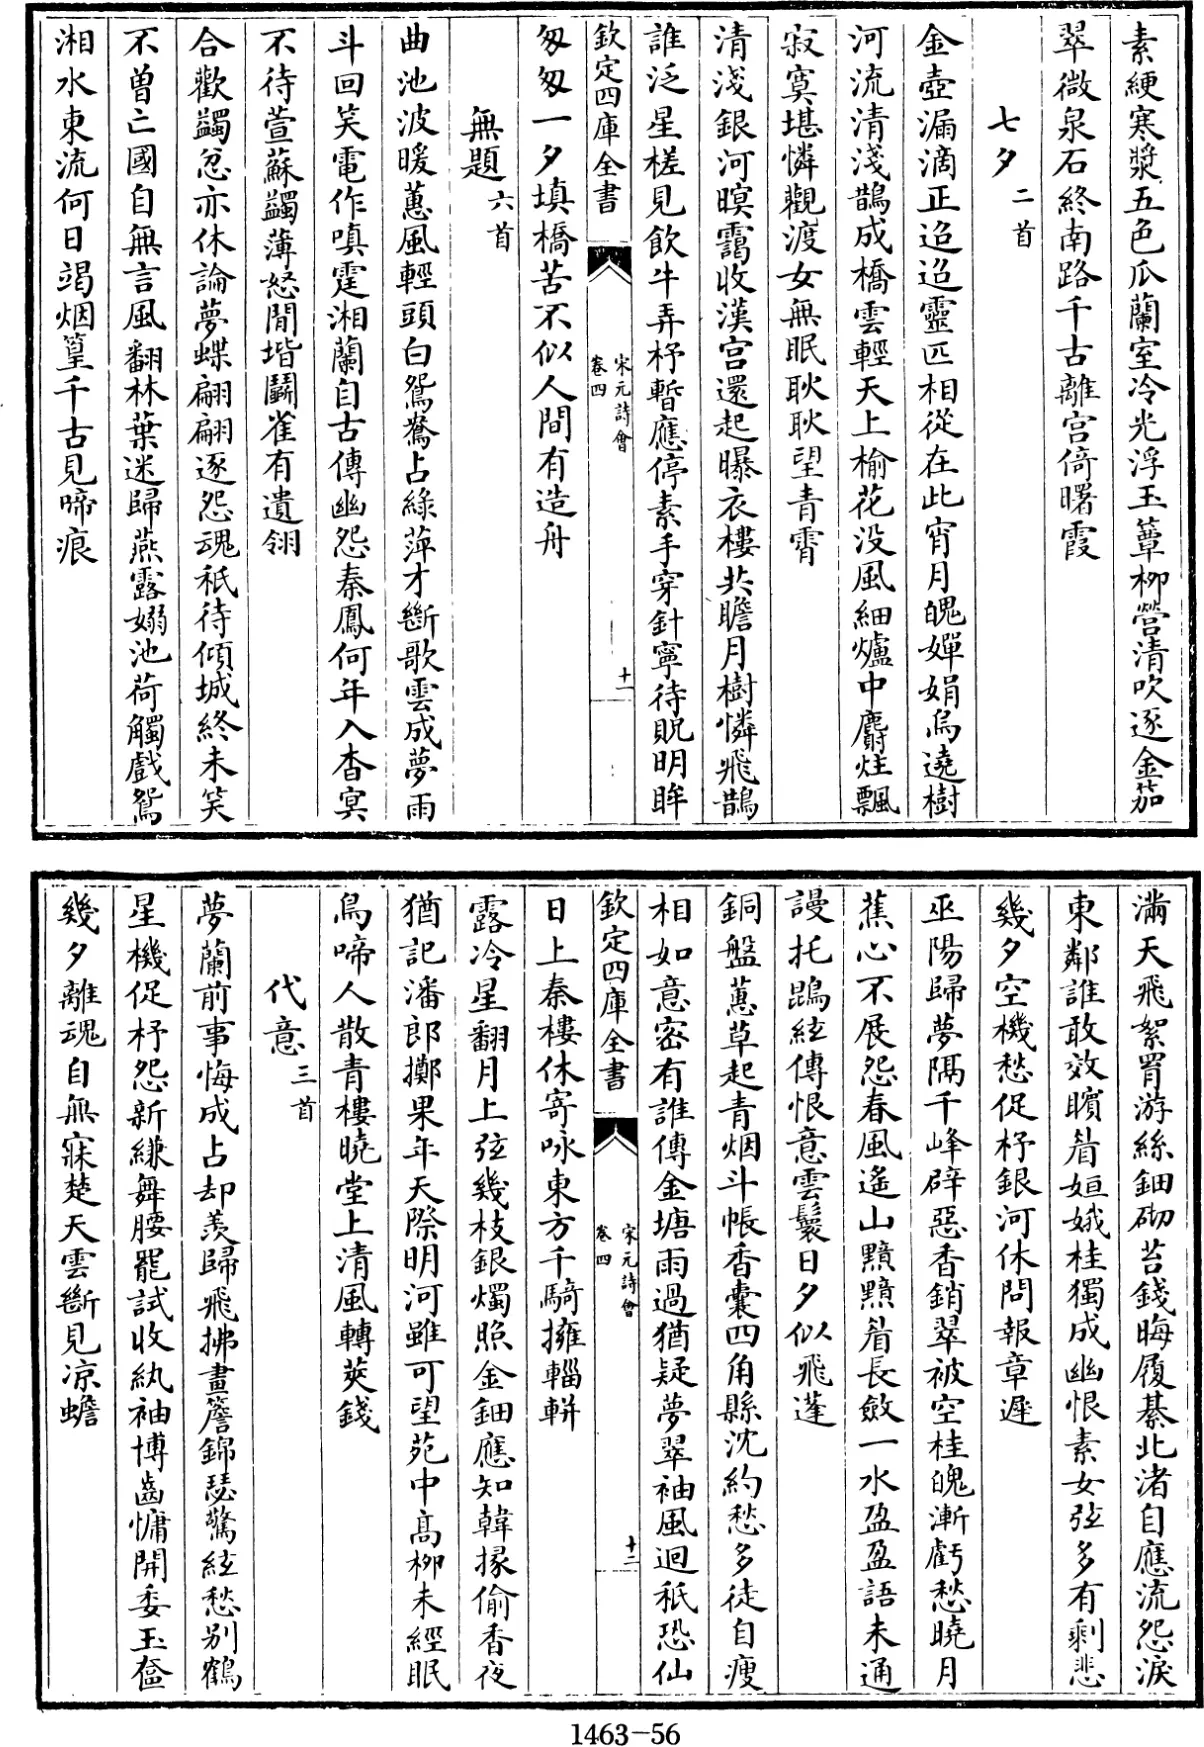 素綆寒漿五色瓜蘭室冷光浮玉簟栁營清吹逐金茄
翠微泉石終南路千古離宫倚曙霞
七夕二首
金壺漏滴正迢迢靈匹相從在此宵月魄嬋娟烏遶樹
河流清淺鵲成橋雲輕天上榆花没風細爐中麝炷飄
寂寞堪憐觀渡女無眠耿耿望青霄
清淺銀河暝靄收漢宫還起曝衣樓共瞻月樹憐飛鵲
誰泛星槎見飲牛弄杼暫應停素手穿針寧待貺明眸
欽定四庫全書
宋元詩會
卷四
十一
匆匆一夕填橋苦不似人間有造舟
無題六首
曲池波暖蕙風輕頭白鴛鴦占綠萍才斷歌雲成夢雨
斗回笑電作嗔霆湘蘭自古傳幽怨秦鳳何年入杳冥
不待萱蘇蠲薄怒閒堦鬭雀有遺翎
合歡蠲忿亦休論夢蝶翩翩逐怨魂秪待傾城終未笑
不曽亡國自無言風翻林葉迷歸燕露嫋池荷觸戲鴛
湘水東流何日竭烟篁千古見啼痕
滿天飛絮罥游絲鈿砌苔錢晦履綦北渚自應流怨淚
東鄰誰敢效矉眉姮娥桂獨成幽恨素女弦多有剩悲
幾夕空機愁促杼銀河休問報章遲
巫陽歸夢隔千峰辟惡香銷翠被空桂魄漸虧愁曉月
蕉心不展怨春風遙山黯黯眉長斂一水盈盈語未通
謾托鵾絃傳恨意雲鬟日夕似飛蓬
銅盤蕙草起青烟斗帳香囊四角縣沈約愁多徒自瘦
相如意密有誰傳金塘雨過猶疑夢翠袖風迴秖恐仙
欽定四庫全書
宋元詩會
卷四
十二
日上秦樓休寄咏東方千騎擁輜軿
露冷星翻月上弦幾枝銀燭照金鈿應知韓掾偷香夜
猶記潘郎擲果年天際明河雖可望苑中高栁未經眠
鳥啼人散青樓曉堂上清風轉莢錢
代意三首
夢蘭前事悔成占却羨歸飛拂畫簷錦瑟驚絃愁别鶴
星機促杼怨新縑舞腰罷試收紈袖博齒慵開委玉奩
幾夕離魂自無寐楚天雲斷見凉蟾
1463-56